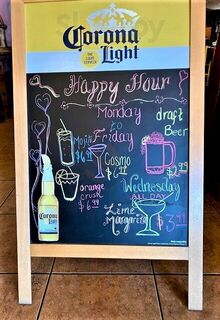 Corona
Light
Happy Hour
Monday
to
Friday
draft
Beer
Mojito
Cosmo
$6
orange
crush
$6.99
Wednesday
ALL DAY
Lime
Margarita
$3.99
Corona
Light